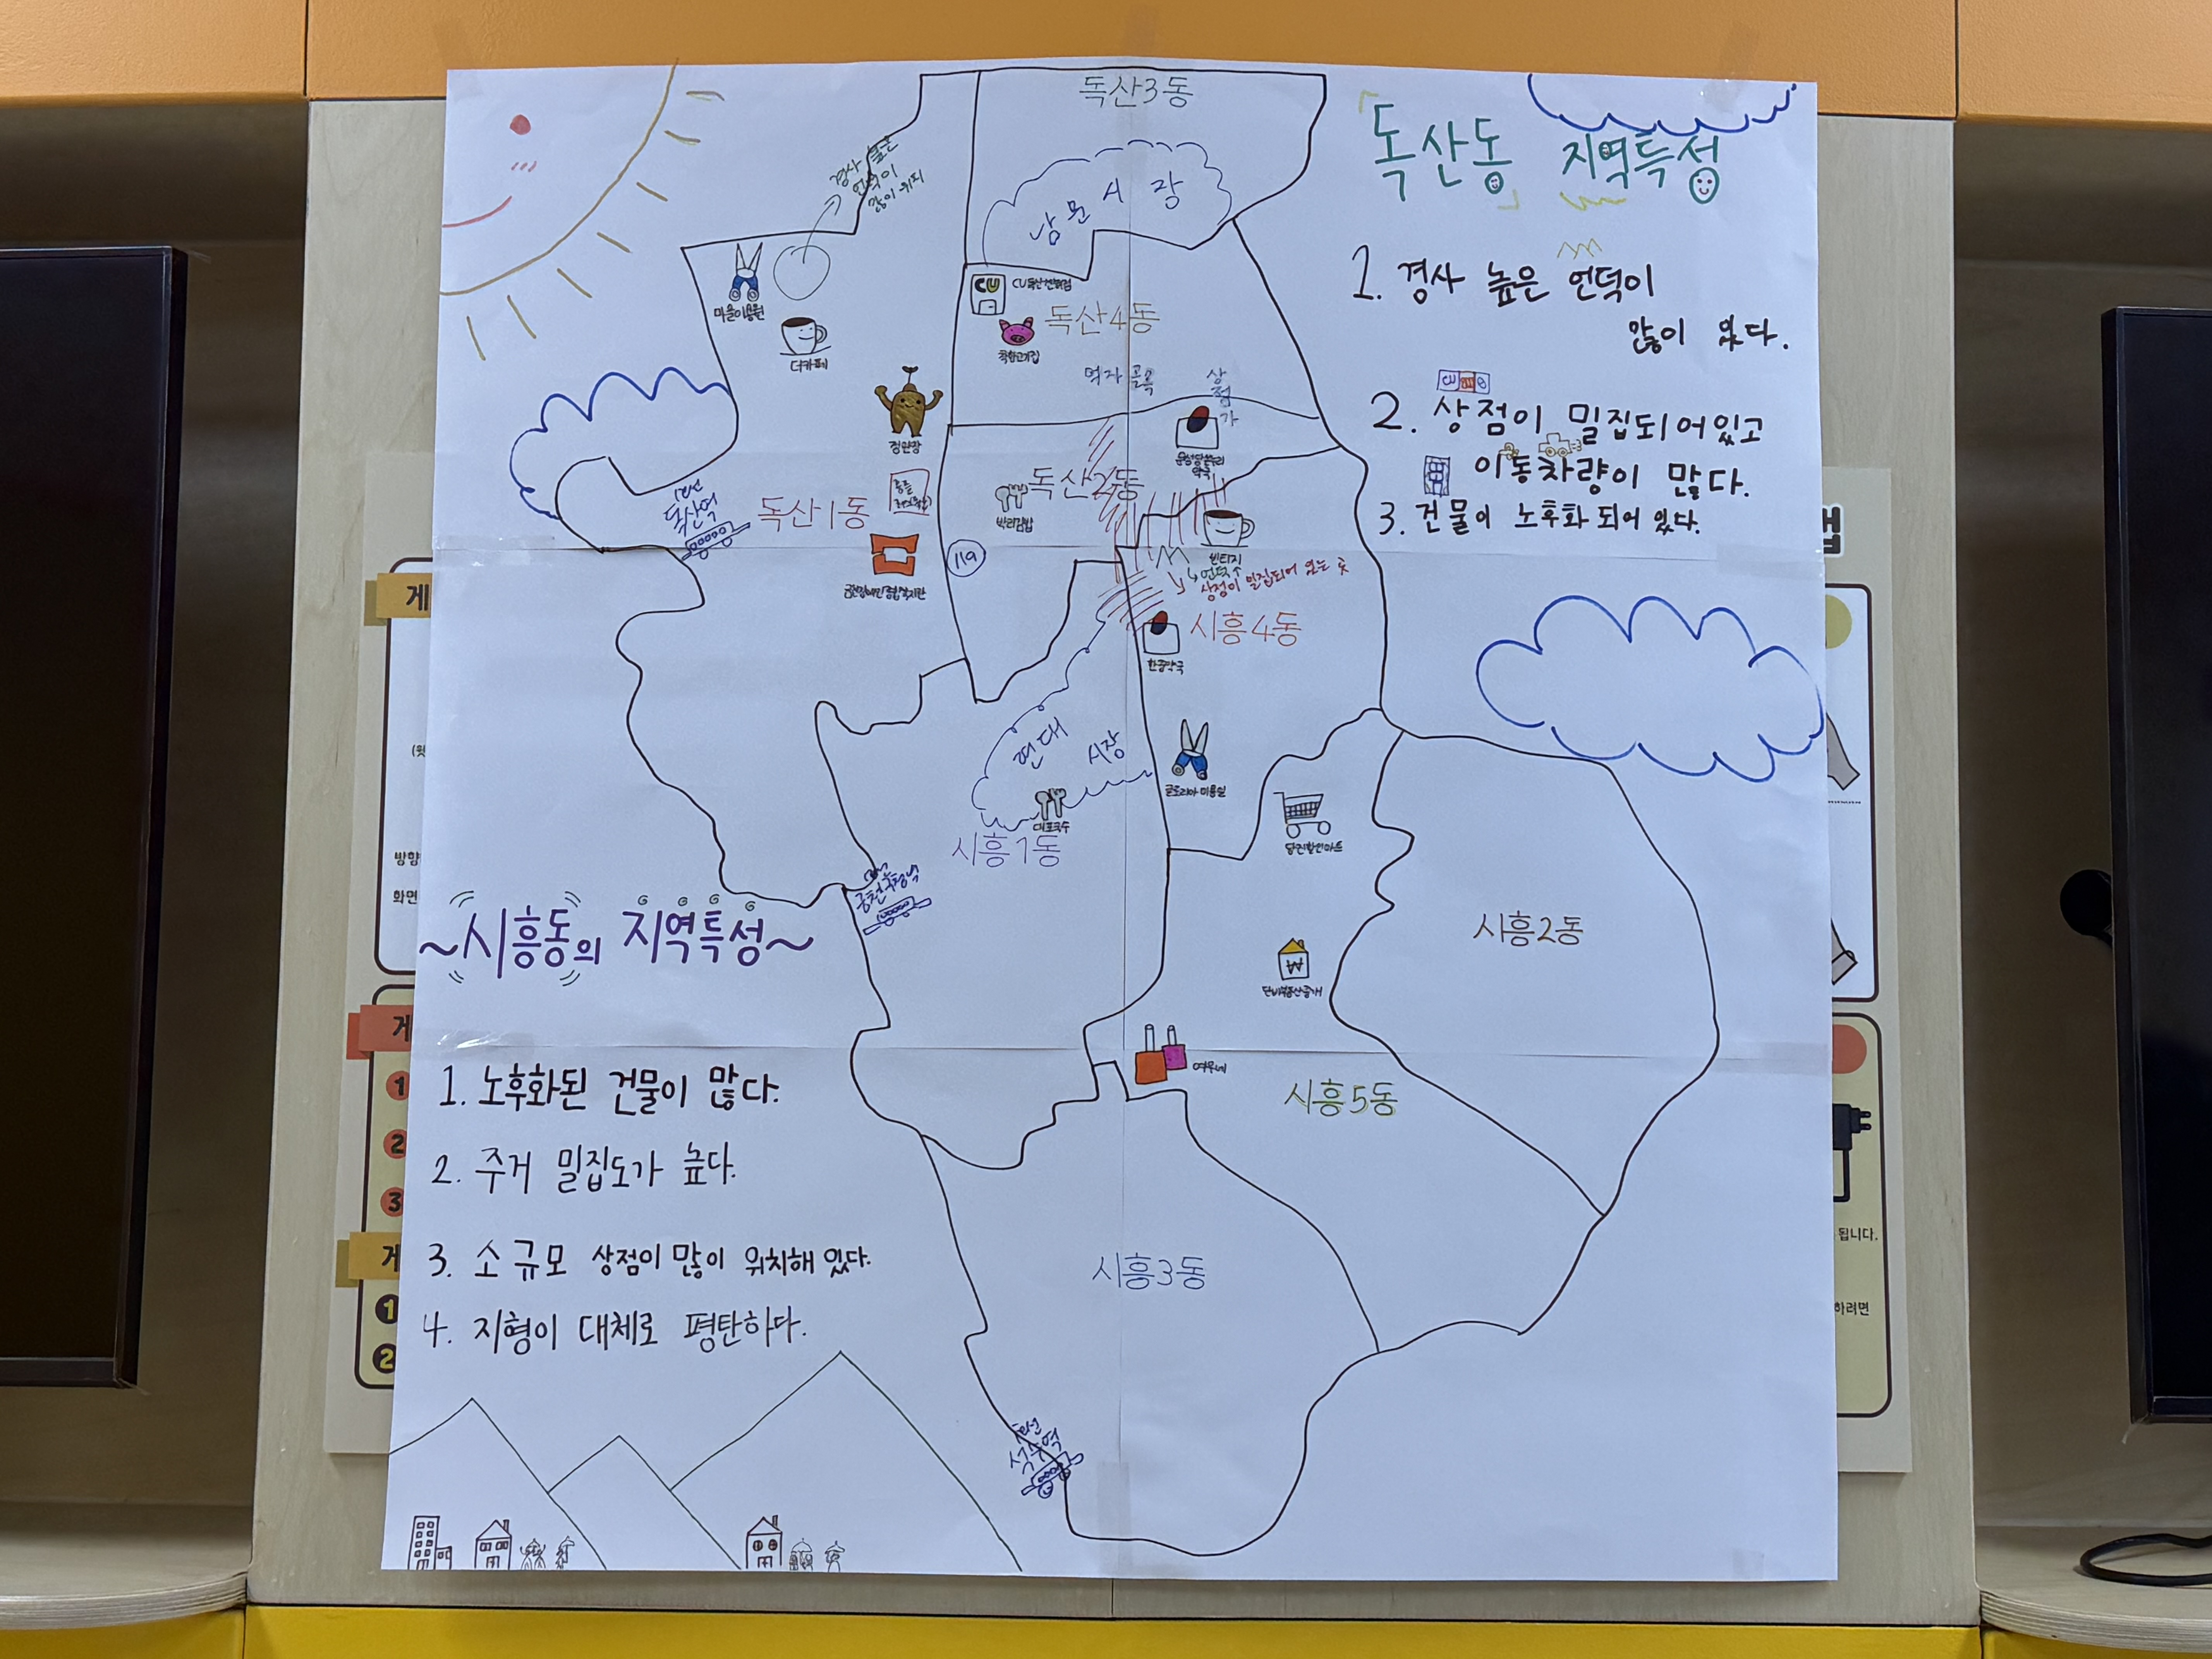 독산3동
「독산동」 지역특성
경사 높은
언덕이
많이 위치
남문시장
1. 경사 높은 언덕이
많이 있다.
마을이용원
더카페
CU
독산4동
착한고기집
먹자골목
상점가
2. 상점이 밀집되어있고
이동차량이 많다.
3. 건물이 노후화 되어 있다.
정원장
1호선
독산역
독산1동
독산2동
박리김밥
약국
119
빈티지
언덕↑
상점이 밀집되어 있는 곳
시흥4동
한중약국
현대시장
글로리아 미용실
대포국수
시흥1동
당진할인마트
금천구청역
~시흥동의 지역특성~
시흥2동
단비부동산중개
여우네
시흥5동
1. 노후화된 건물이 많다.
2. 주거 밀집도가 높다.
3. 소규모 상점이 많이 위치해 있다.
4. 지형이 대체로 평탄하다.
시흥3동
1호선
석수역
게
방향
화면
게
1
2
3
게
1
2
됩니다.
하려면